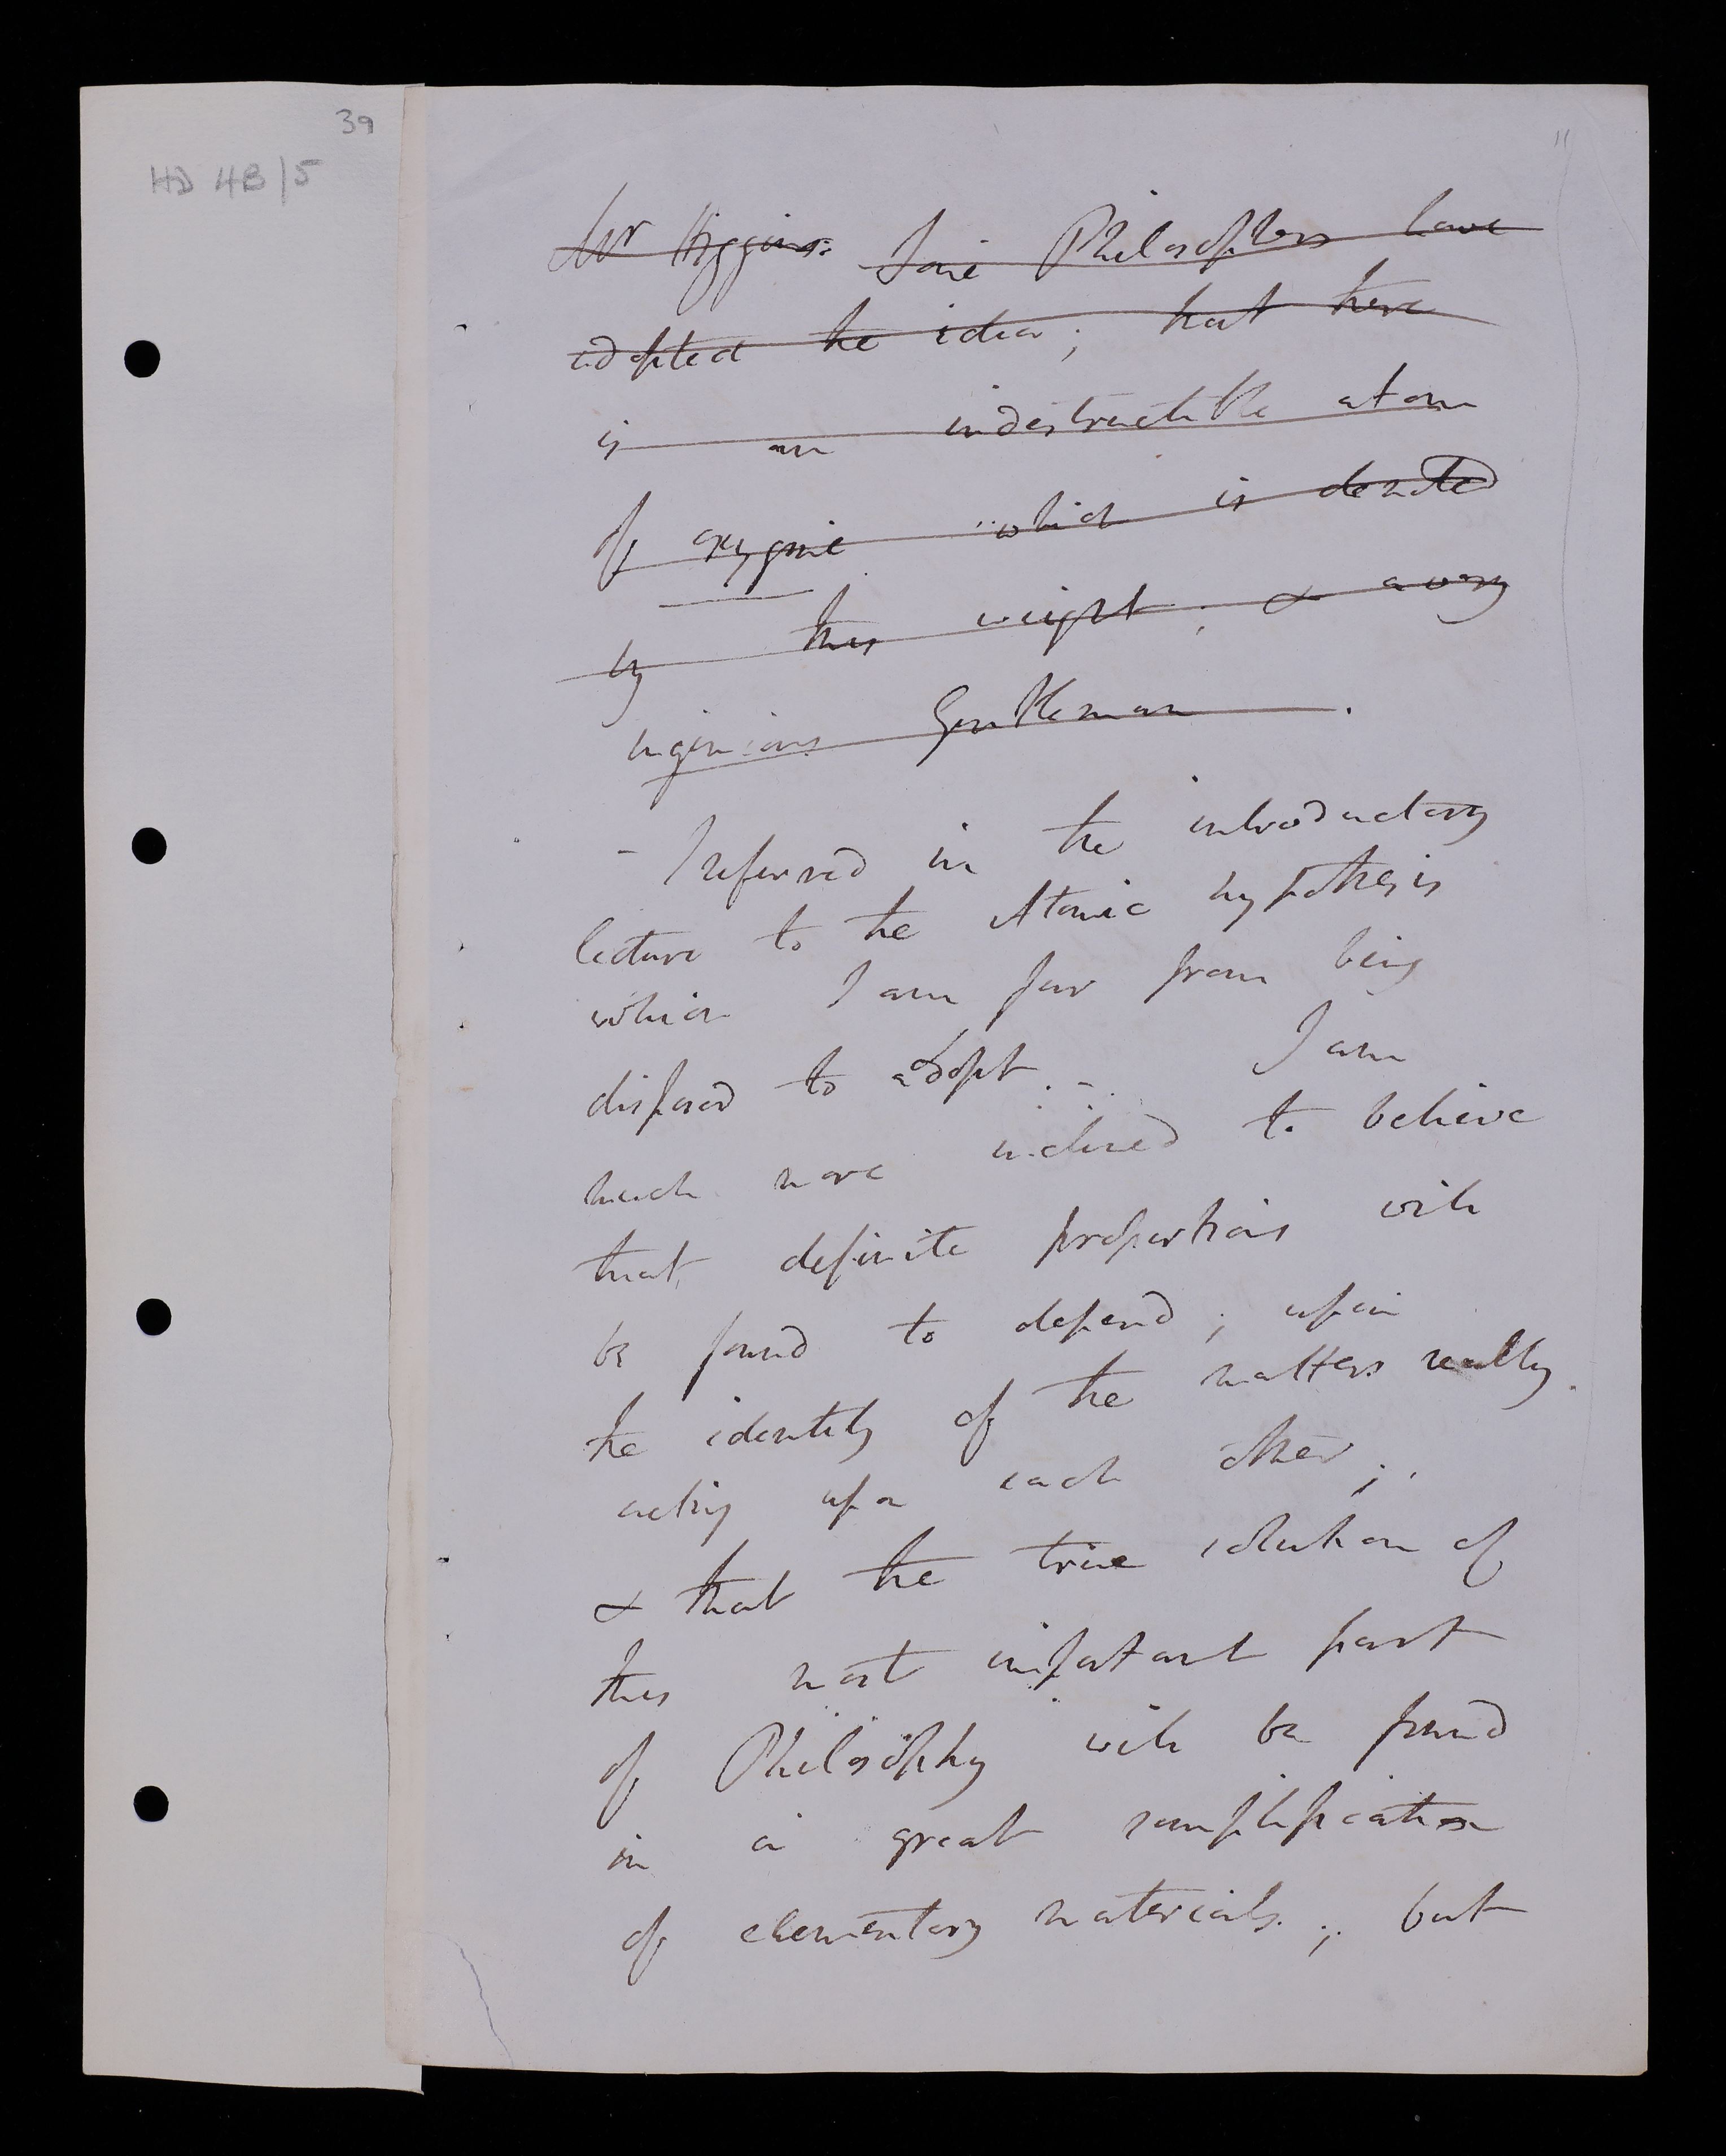 39
HD 4B/5
11
Mr Higgins. Some Philosophers have
adopted the idea; that there
is an indestructible atom
of oxygene which is denoted
by this weight; & a very
ingenious Gentleman.
- I referred in the introductory
lecture to the Atomic hypothesis
which I am far from being
disposed to adopt. - I am
much more inclined to believe
that definite proportions will
be found to depend; upon
the identity of the matters really
acting upon each other;
& that the true solution of
this most important part
of Philosophy will be found
in a great simplification
of elementary materials; but